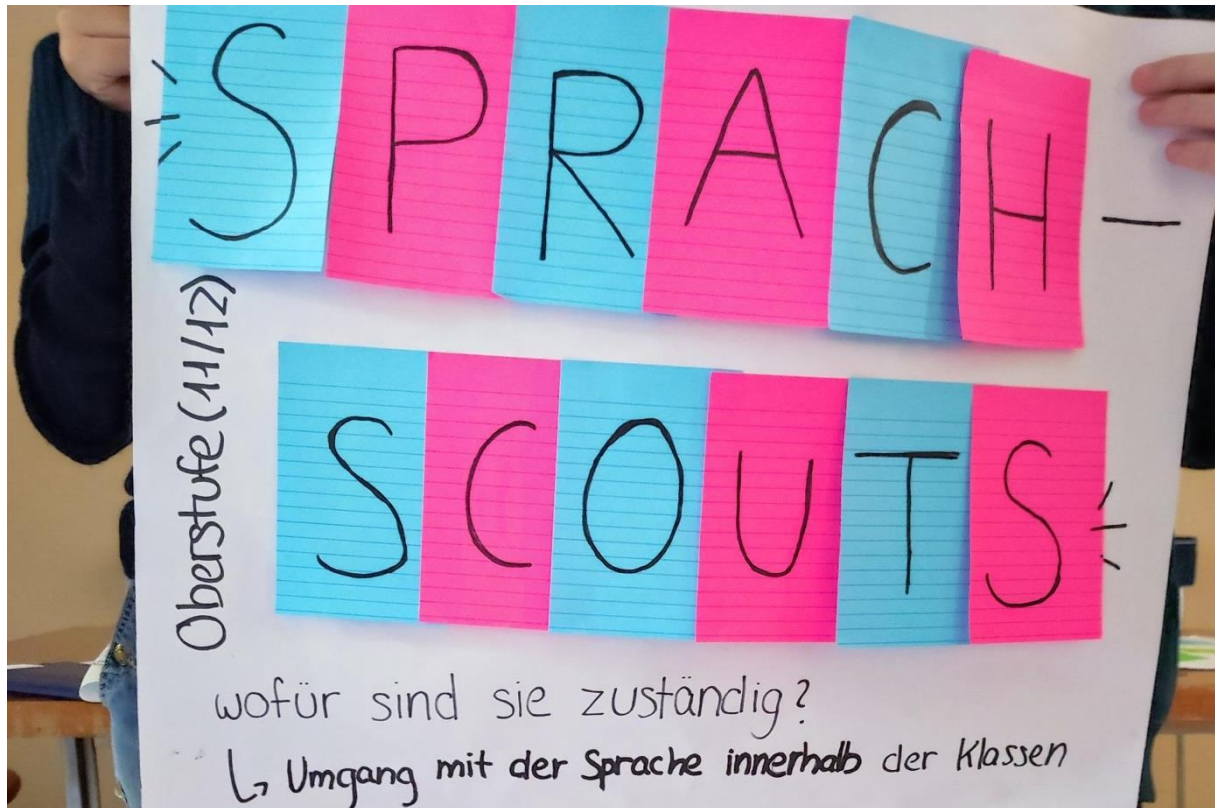 SPRACH-
SCOUTS
Oberstufe (11/12)
wofür sind sie zuständig?
↳ Umgang mit der Sprache innerhalb der Klassen